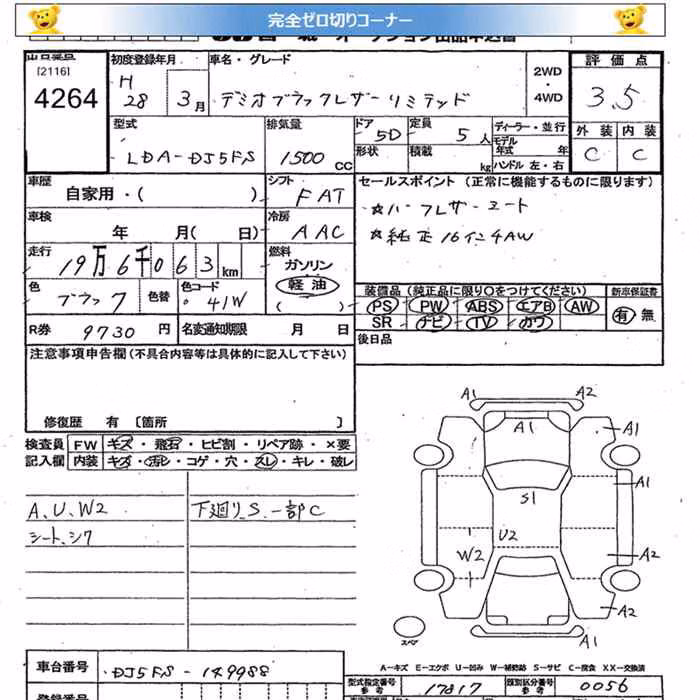 完全ゼロ切りコーナー
出品番号 初度登録年月 車名・グレード 2WD・4WD 評価点
[2116]
4264 H28 3月 デミオブラックレザーリミテッド 3.5
型式 排気量 ドア 5D 定員 5人 ディーラー・並行 外装 内装
LDA-DJ5FS 1500cc 形状 積載 kg モデル年式 年 ハンドル 左・右 C C
車歴 シフト セールスポイント (正常に機能するものに限ります)
自家用・( ) FAT ☆ハーフレザーシート
車検 冷房 ☆純正16インチAW
年 月( 日) AAC
走行 燃料
19万6千063km ガソリン
軽油
色 色替 色コード ( ) 装備品(純正品に限り○をつけてください) 新車保証書
ブラック 41W PS PW ABS エアB AW 有 無
R券 9730円 名変通知期限 月 日 SR ナビ TV カワ
注意事項申告欄(不具合内容等は具体的に記入して下さい) 後日品
修復歴 有 〔箇所 〕
検査員 FW キズ・飛石・ヒビ割・リペア跡・×要
記入欄 内装 キズ・汚レ・コゲ・穴・スレ・キレ・破レ
A1 A2
A1 A1
A1
S1
A、U、W2 下廻りS、一部C
U2
シート、シワ
W2 A2
A2
スペア
A1
A―キズ E―エクボ U―凹み W―補修跡 S―サビ C―腐食 XX―交換済
車台番号 DJ5FS-149988 型式指定番号 参考 17817 類別区分番号 参考 0056
登録番号